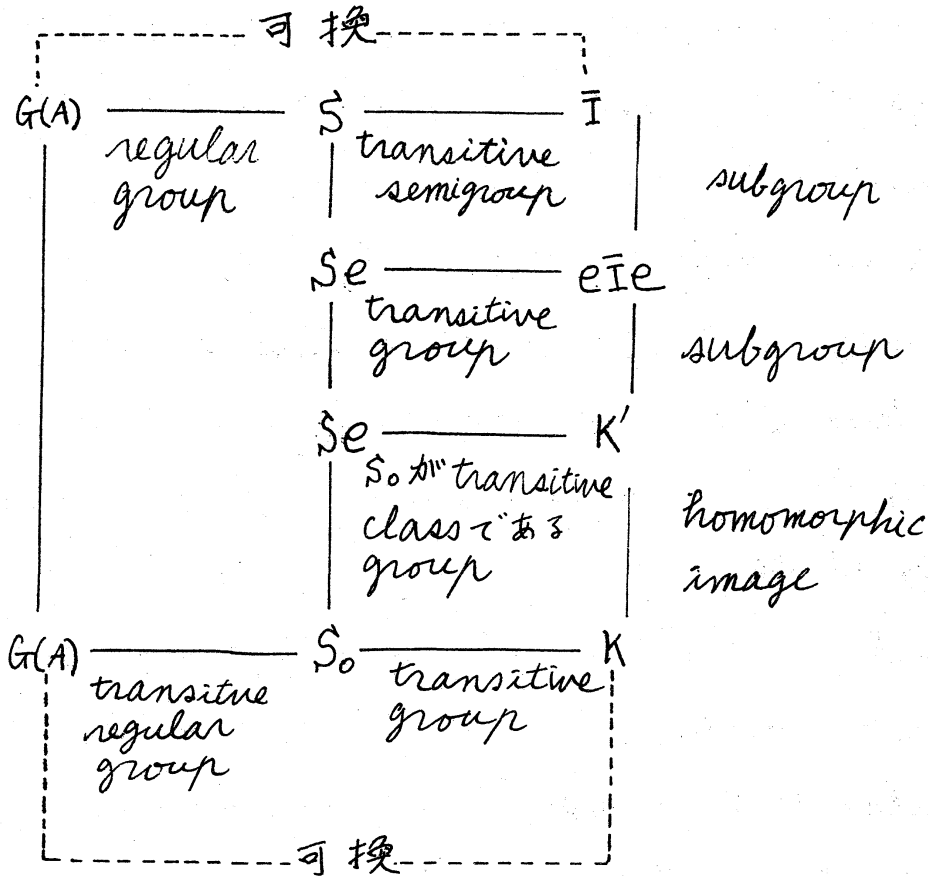 可換
G(A) S Ī
regular group
transitive semigroup
subgroup
Se eĪe
transitive group
subgroup
Se K′
S₀がtransitive
classである
group
homomorphic
image
G(A) S₀ K
transitve
regular
group
transitive
group
可換